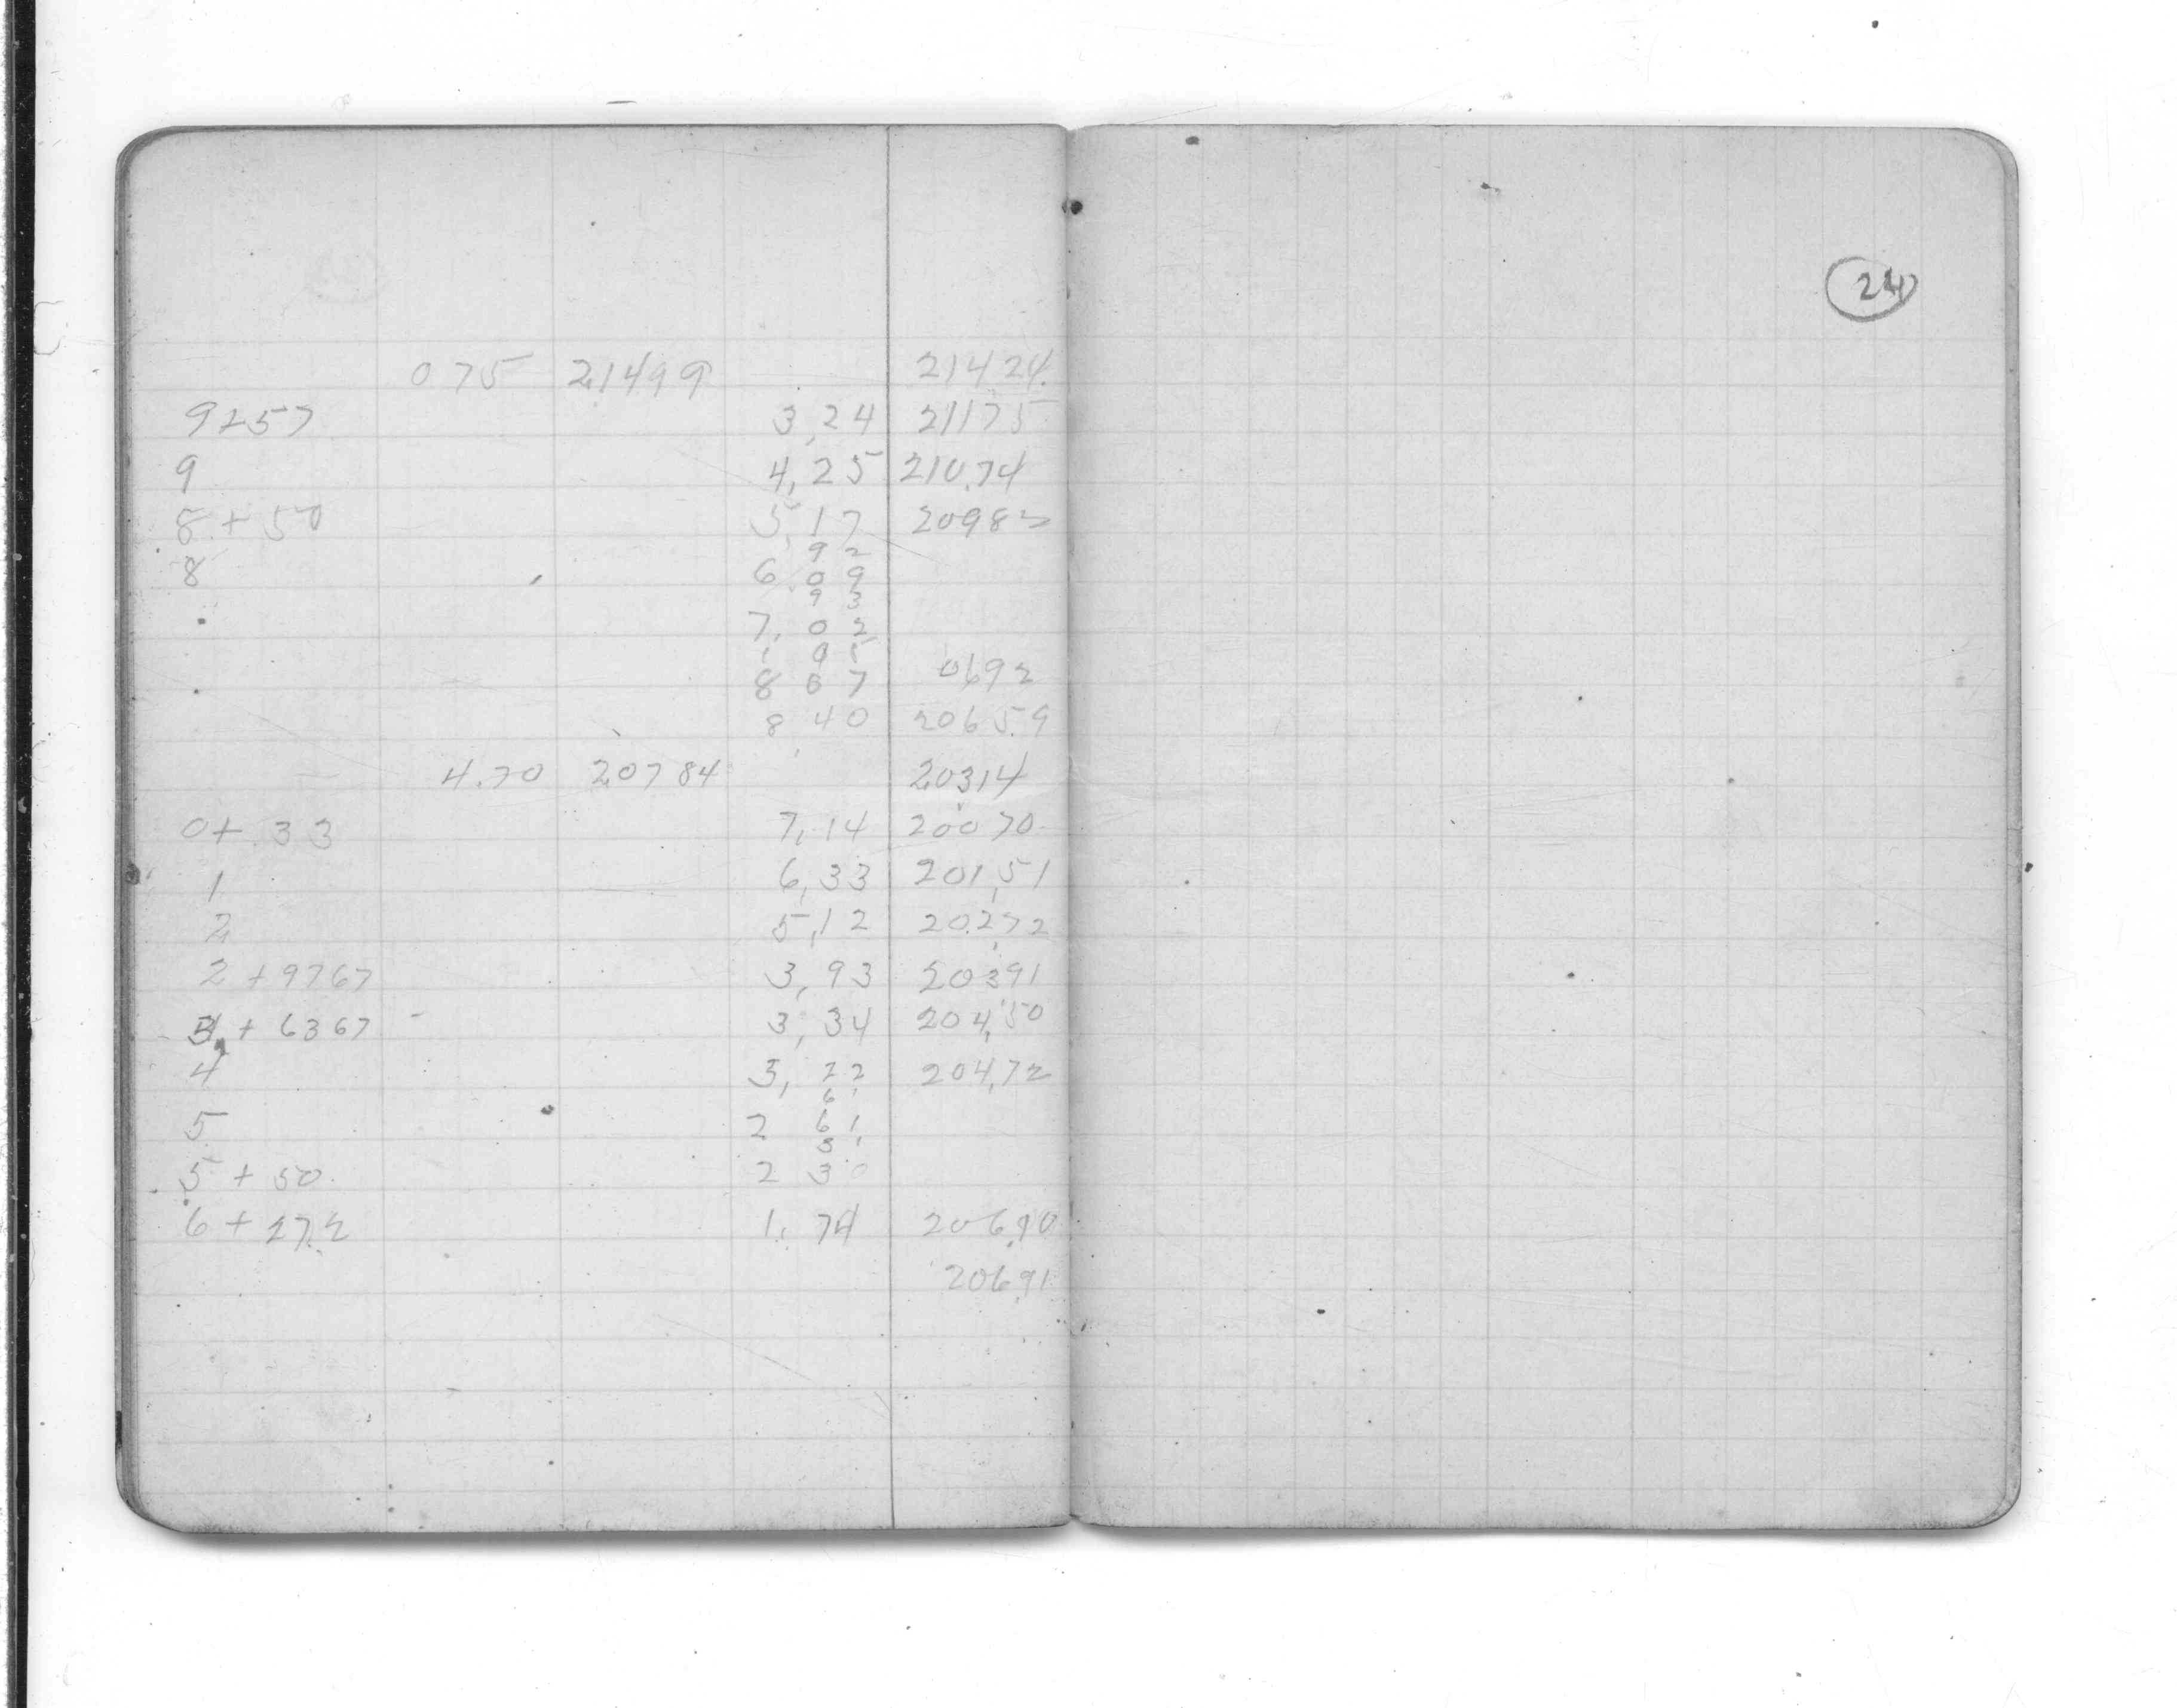 24
075 21499 21424
9+57 3,24 21175
9 4,25 210.74
8+50 5,17 20982
92
8 6 09
93
7, 02
95
8 07 0692
8 40 206 59
4.70 207 84 203,14
0+ 33 7,14 200 70
1 6,33 201,51
2 5,12 202 72
2 +9767 3,93 203 91
3 + 6367 3,34 204,50
4 3,22 204,72
61
5 2 61
31
5 + 50 2 30
6 + 27.2 1, 74 206.10
206,91